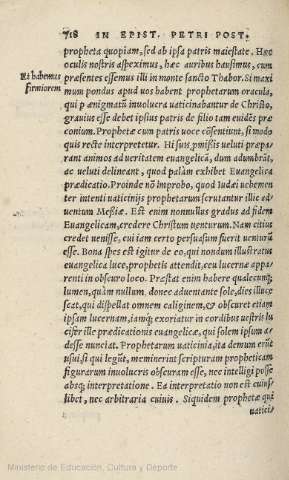 718 IN EPIST. PETRI POST.
propheta quopiam, sed ab ipsa patris maiestate. Hæc
oculis nostris aspeximus, hæc auribus hausimus, cum
Et habemus
firmiorem
præsentes essemus illi in monte sancto Thabor. Si maxi
mum pondus apud uos habent prophetarum oracula,
qui p ænigmatū inuolucra uaticinabantur de Christo,
grauius esse debet ipsius patris de filio tam euidēs præ
conium. Prophetæ cum patris uoce cōsentiunt, si modo
quis recte interpretetur. Hi sunt p̄missi ueluti præpa-
rant animos ad ueritatem euangelicā, dum adumbrāt,
ac ueluti delineant, quod palàm exhibet Euangelica
prædicatio. Proinde nō improbo, quod Iudæi uehemen
ter intenti uaticinijs prophetarum scrutantur illic ad
uentum Meßiæ. Est enim nonnullus gradus ad fidem
Euangelicam, credere Christum uenturum. Nam citius
credet uenisse, cui iam certo persuasum fuerit uenturū
esse. Bona spes est igitur de eo, qui nondum illustratus
euangelica luce, prophetis attendit, ceu lucernæ appa-
renti in obscuro loco. Præstat enim habere qualecunq;
lumen, quàm nullum, donec adueniante sole, dies illuce
scat, qui dispellat omnem caliginem, & obscuret etiam
ipsam lucernam, iamq; exoriatur in cordibus uestris lu
cifer ille prædicationis euangelicæ, qui solem ipsum a-
desse nunciat. Prophetarum uaticinia, ita demum erūt
usui, si qui legūt, meminerint scripturam propheticam
figurarum inuolucris obscuram esse, nec intelligi posse
absq; interpretatione. Ea interpretatio non est cuius-
libet, nec arbitraria cuiuis. Siquidem prophetæ qui
uaticia
Ministerio de Educación, Cultura y Deporte